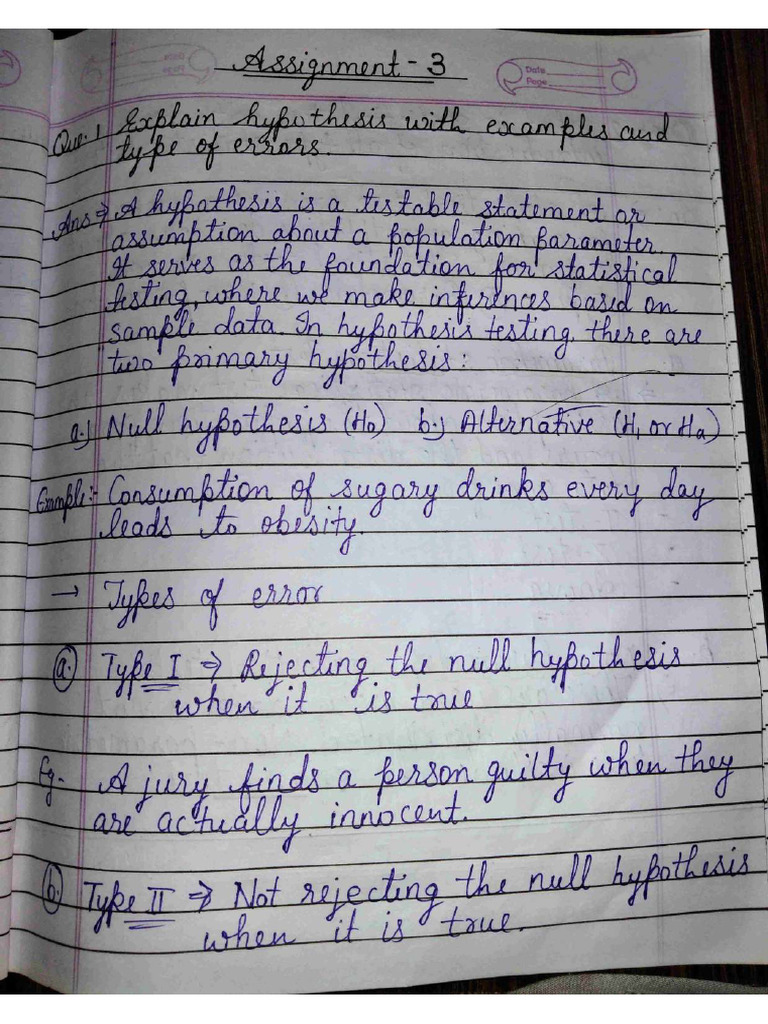 Assignment - 3
Date
Page
Que. 1 Explain hypothesis with examples and
type of errors.
Ans ⇒ A hypothesis is a testable statement or
assumption about a population parameter.
It serves as the foundation for statistical
testing, where we make inferences based on
sample data. In hypothesis testing, there are
two primary hypothesis :
a.) Null hypothesis (H0) b.) Alternative (H1 or Ha)
Example:- Consumption of sugary drinks every day
leads to obesity.
→ Types of error
(a.) Type I ⇒ Rejecting the null hypothesis
when it is true
Eg- A jury finds a person guilty when they
are actually innocent.
(b.) Type II ⇒ Not rejecting the null hypothesis
when it is true.